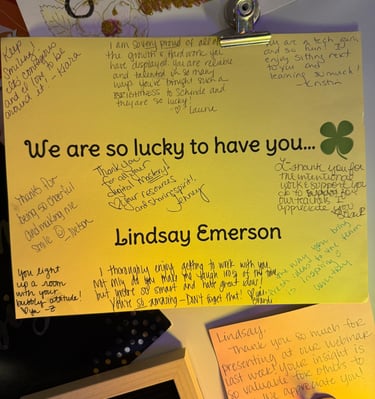 Keep
Smiling!
It's contagious
and I love to be
around it. - Kiara
I am so very proud of all of
the growth & hard work you
have displayed. You are reliable
and talented in so many
ways. You've brought such a
BRIGHTNESS to Schinde and
they are so lucky!
- ♡ Laurie
You are a tech guru
and so fun! I
enjoy sitting next
to you and
learning so much!
- Kristin
We are so lucky to have you...
Thanks for
being so cheerful
and making me
smile ☺
Thank you
for all your
digital mastery!
♡ your resources
and sharing spirit!
I thank you for
the intentional
work & support you
do to
our
I appreciate
you
Lindsay Emerson
You light
up a room
with your
bubbly attitude!
I thoroughly enjoy getting to work with you.
Not only do you make me laugh 110% of the time,
but you're so smart and have great ideas!
You're so amazing - Don't forget that!
you bring
to the team
is
Lindsay,
Thank you so much for
presenting at our webinar
last week! Your insight is
so valuable for others to
We appreciate you!